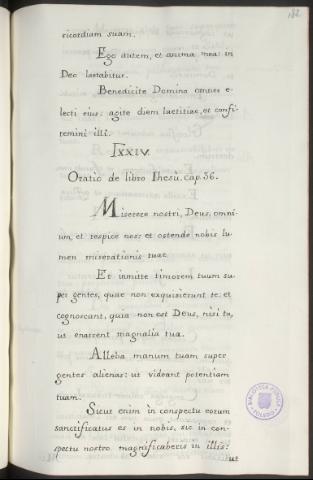 182
ricordiam suam.
Ego autem, et anima mea: in
Deo laetabitur.
Benedicite Domino omnes e-
lecti eius: agite diem laetitiae, et confi
temini illi.
LXXIV.
Oratio de libro Ihesù. cap. 36.
Miserere nostri, Deus, omni-
um, et respice nos: et ostende nobis lu
men miserationis tuae.
Et inmitte timorem tuum su-
per gentes, quae non exquisierunt te: et
cognoscant, quia non est Deus, nisi tu,
ut enarrent magnalia tua.
Alleba manum tuam super
gentes alienas: ut videant potentiam
tuam.
Sicut enim in conspectu eorum
sanctificatus es in nobis, sic in con-
spectu nostro magnificaberis in illis:
ut
BIBLIOTECA PUBLICA
TOLEDO